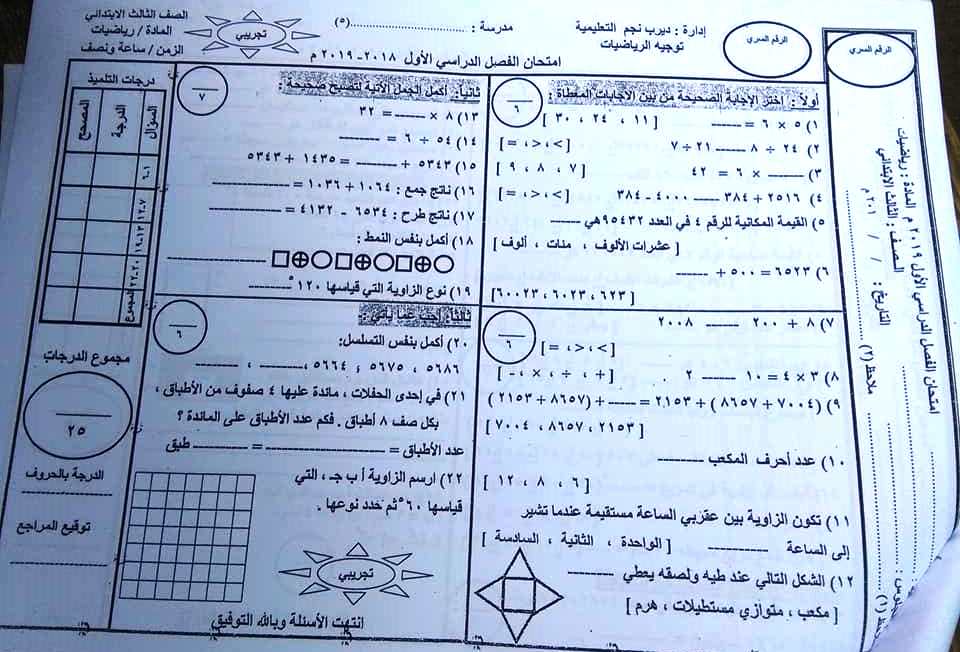 الصف الثالث الابتدائي
المادة / رياضيات
الزمن / ساعة ونصف
تجريبي
مدرسة : ..........................(٥)
إدارة : ديرب نجم التعليمية
توجيه الرياضيات
امتحان الفصل الدراسي الأول ٢٠١٨-٢٠١٩ م
الرقم السري
الرقم السري
امتحان الفصل الدراسي الأول ٢٠١٩ م المادة : رياضيات
الصف : الثالث الابتدائي
التاريخ : / / ٢٠١ م
ملاحظ (٢)
أولاً : إختر الإجابة الصحيحة من بين الإجابات المعطاة :
٦
١) ٥ × ٦ = ------ [ ١١ ، ٢٤ ، ٣٠ ]
٢) ٢٤ ÷ ٨ ------ ٢١ ÷ ٧ [ < ، > ، = ]
٣) ------ × ٦ = ٤٢ [ ٧ ، ٨ ، ٩ ]
٤) ٢٥١٦ + ٣٨٤ ------ ٤٠٠٠ - ٣٨٤ [ < ، > ، = ]
٥) القيمة المكانية للرقم ٤ في العدد ٩٥٤٣٢ هي ------
[ عشرات الألوف ، مئات ، ألوف ]
٦) ٦٥٢٣ = ٥٠٠ + ------
[ ٦٢٣ ، ٦٠٢٣ ، ٦٠٠٢٣ ]
٧) ٨ + ٢٠٠ ٢٠٠٨
٦
[ < ، > ، = ]
٨) ٣ × ٤ = ١٠ ------ ٢ [ + ، ÷ ، × ، - ]
٩) ( ٧٠٠٤ + ٨٦٥٧ ) + ٢١٥٣ = ------ + ( ٨٦٥٧ + ٢١٥٣ )
[ ٢١٥٣ ، ٨٦٥٧ ، ٧٠٠٤ ]
١٠) عدد أحرف المكعب ------
[ ٦ ، ٨ ، ١٢ ]
١١) تكون الزاوية بين عقربي الساعة مستقيمة عندما تشير
إلى الساعة ------ [ الواحدة ، الثانية ، السادسة ]
١٢) الشكل التالي عند طيه ولصقه يعطي ------
[ مكعب ، متوازي مستطيلات ، هرم ]
ثانياً: أكمل الجمل الآتية لتصبح صحيحة :
٧
١٣) ٨ × ------ = ٣٢
١٤) ٥٤ ÷ ٦ = ------
١٥) ٥٣٤٣ + ------ = ١٤٣٥ + ٥٣٤٣
١٦) ناتج جمع : ١٠٦٤ + ١٠٣٦ = ------
١٧) ناتج طرح : ٦٥٣٤ - ٤١٣٢ = ------
١٨) أكمل بنفس النمط :
١٩) نوع الزاوية التي قياسها ١٢٠° ------
ثالثاً: أجب عما يأتي :
٦
٢٠) أكمل بنفس التسلسل:
٥٦٨٦ ، ٥٦٧٥ ، ٥٦٦٤ ، ------ ، ------
٢١) في إحدى الحفلات ، مائدة عليها ٤ صفوف من الأطباق ،
بكل صف ٨ أطباق . فكم عدد الأطباق على المائدة ؟
عدد الأطباق = ------ = ------ طبق
٢٢) ارسم الزاوية أ ب جـ ، التي
قياسها ٦٠° ثم حدد نوعها .
تجريبي
انتهت الأسئلة وبالله التوفيق
درجات التلميذ
السؤال الدرجة المصحح
٦-١
١٢-٧
١٩-١٣
٢٢-٢٠
المجموع
مجموع الدرجات
٢٥
الدرجة بالحروف
توقيع المراجع